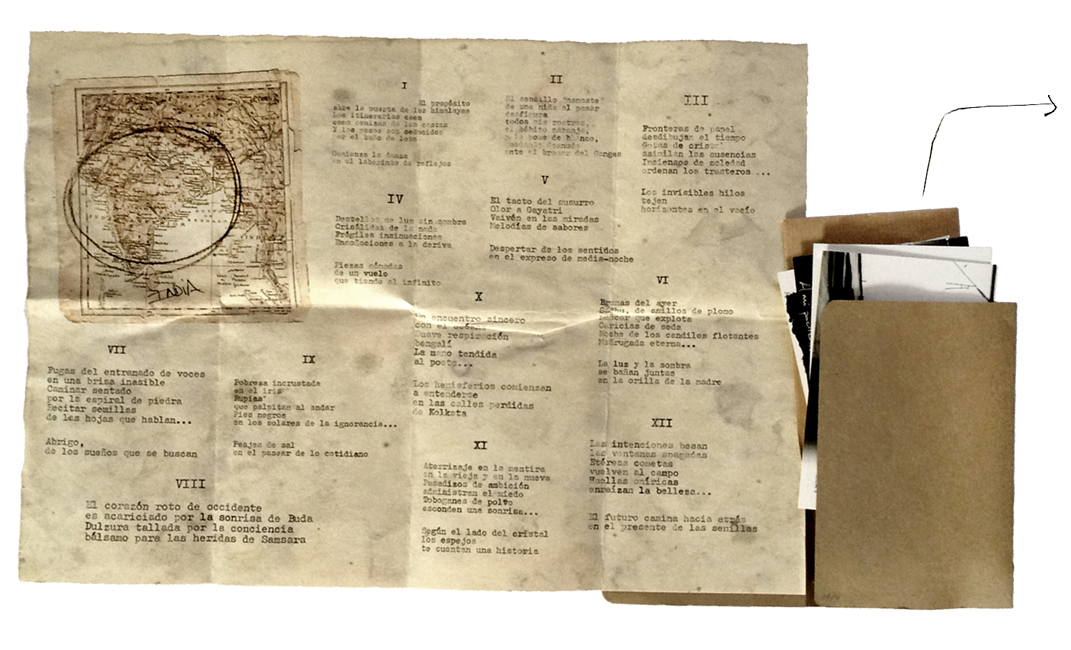 INDIA
I
El propósito
abre la puerta de los himalayas
Los itinerarios caen
como cortinas de las cascas
Y los pasos son seducidos
por el baño de loto
Comienza la danza
en el laberinto de reflejos
II
El sencillo "namaste"
de una niña el pesar
desfigura
todos mis rostros,
el hábito naranja,
desnudo
ante el bramar del Ganges
III
Fronteras de papel
desdibujan el tiempo
Gotas de cristal
asimilan las ausencias
Inciensos de soledad
ordenan los trasteros ...
Los invisibles hilos
tejen
horizontes en el vacío
IV
Destellos de luz sin sombra
Crisálidas de la nada
Frágiles insinuaciones
Ensoñaciones a la deriva
Piezas aónadas
de un vuelo
que tiende al infinito
V
El tacto del susurro
Olor a Gayatri
Vaivén en las miradas
Melodías de sabores
Despertar de los sentidos
en el expreso de media-noche
VI
Brumas del ayer
de anillos de plomo
que explota
Caricias de seda
Noche de los candiles flotantes
Madrugada eterna...
La luz y la sombra
se bañan juntas
en la orilla de la madre
VII
Fugas del entramado de voces
en una brisa inasible
Caminar sentado
por la espiral de piedra
Recitar semillas
de las hojas que hablan...
Abrigo,
de los sueños que se buscan
VIII
El corazón roto de occidente
es acariciado por la sonrisa de Buda
Dulzura tallada por la conciencia
bálsamo para las heridas de Samsara
IX
Pobreza incrustada
en el iris
Rupias
que palpitan al andar
Pies negros
en los solares de la ignorancia...
Peajes de sal
en el pasear de lo cotidiano
X
Un encuentro sincero
con el
Suave respiración
bengalí
La mano tendida
al poeta...
Los hemisferios comienzan
a entenderse
en las calles perdidas
de Kolkata
XI
Aterrizaje en la mentira
en la vieja y en la nueva
Pasadizos de ambición
administran el miedo
Toboganes de polvo
esconden una sonrisa...
Según el lado del cristal
los espejos
te cuentan una historia
XII
Las intenciones besan
las ventanas apagadas
Etéreas cometas
vuelven al campo
Huellas oníricas
enraízan la belleza...
El futuro camina hacia atrás
en el presente de las semillas